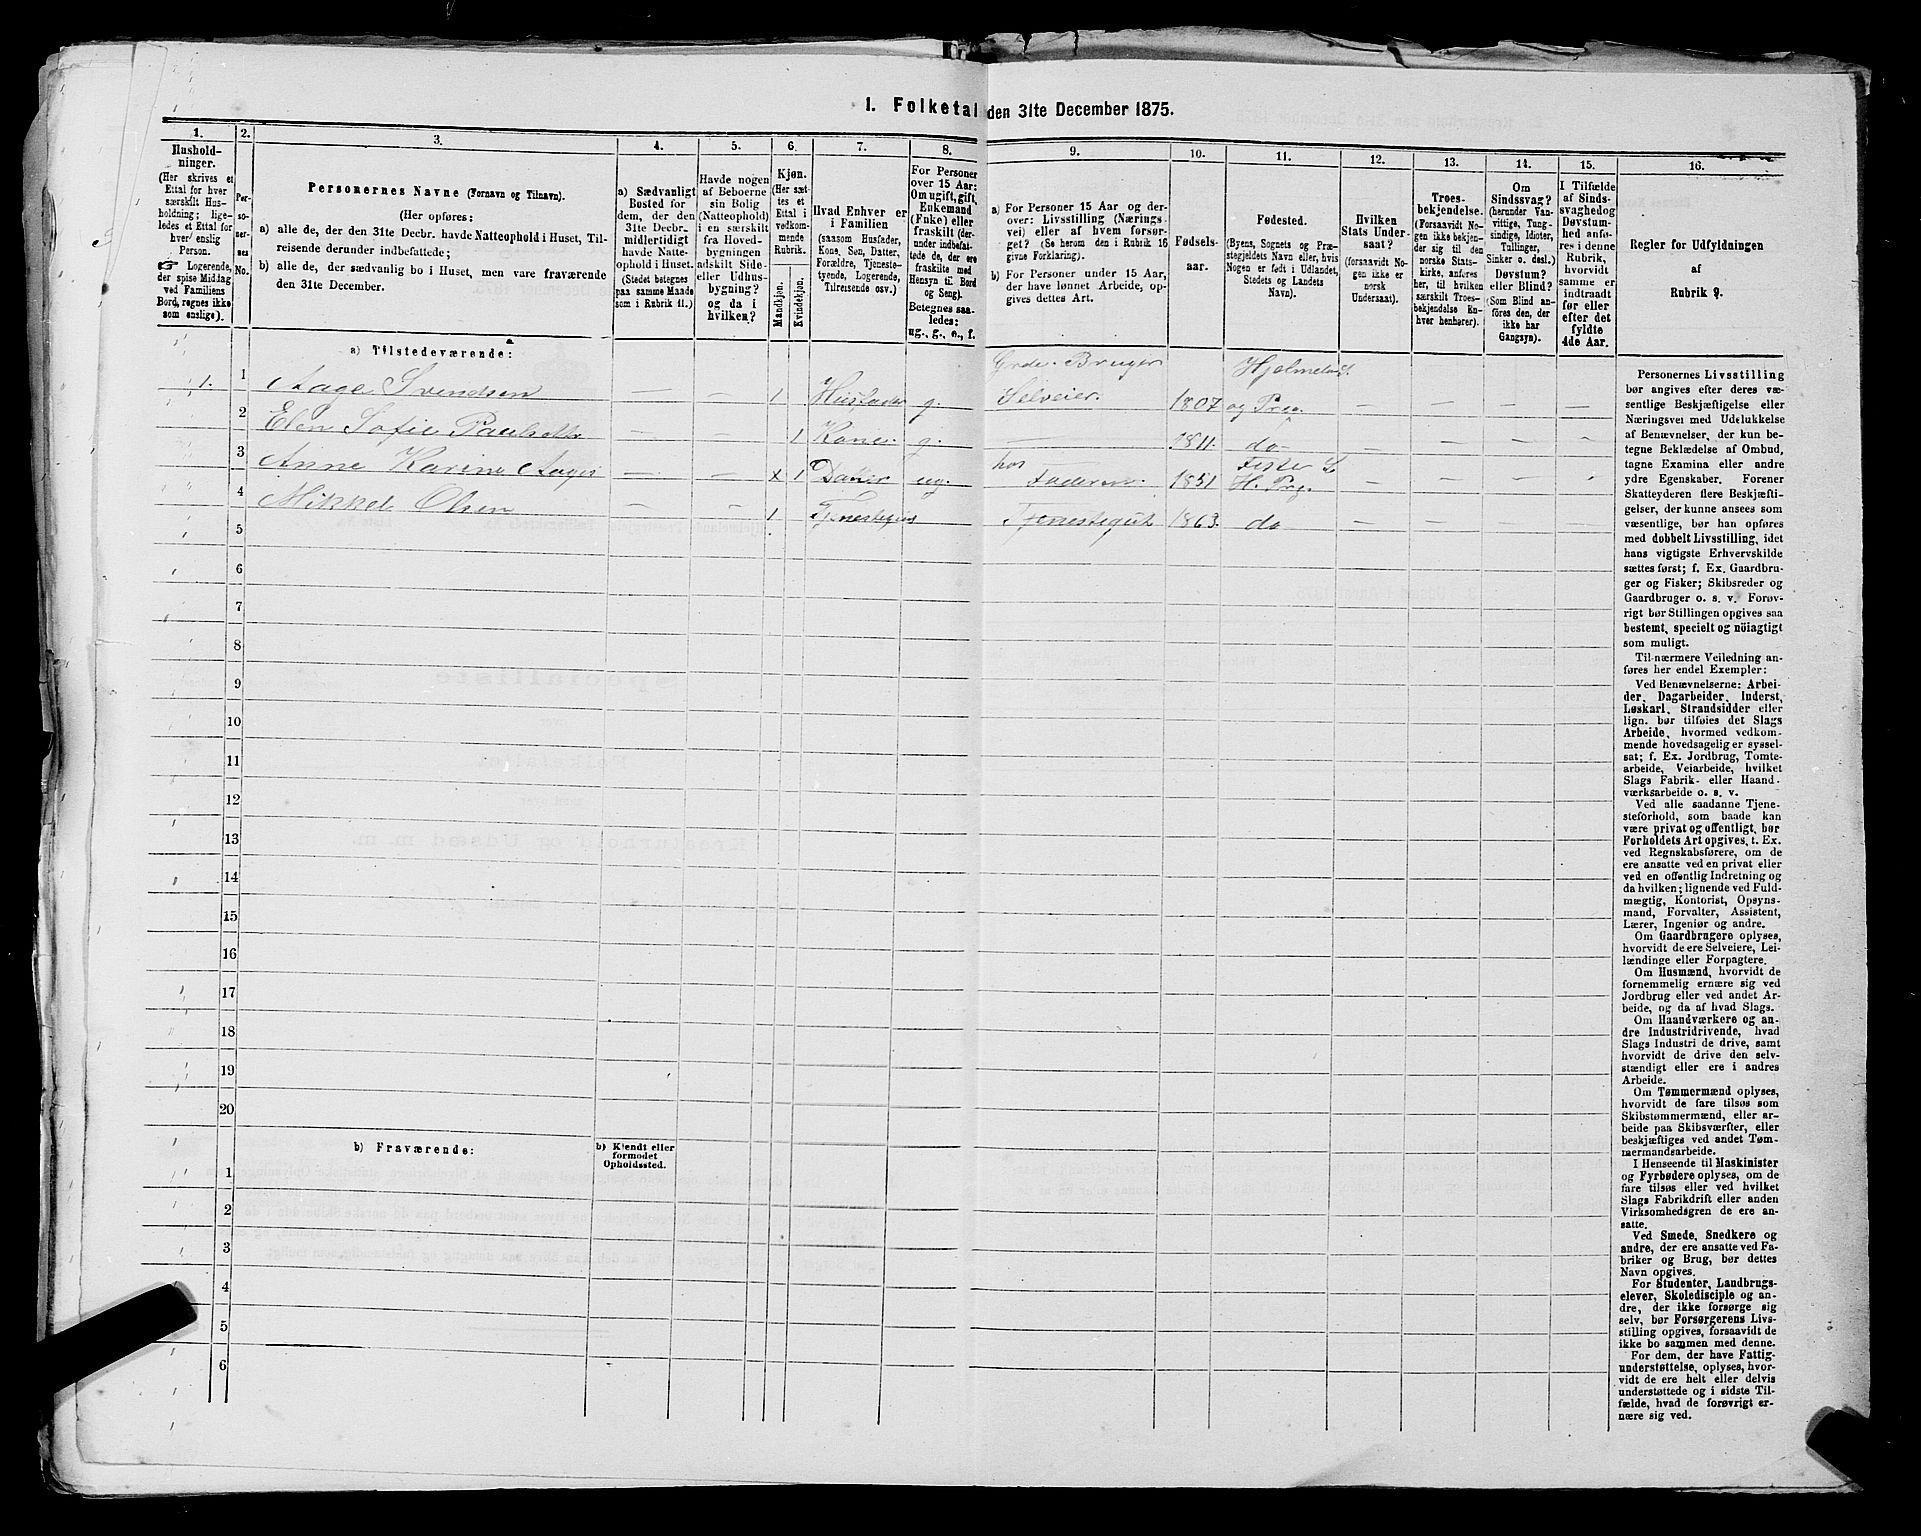 I. Folketal den 31te December 1875.
1.
2.
3.
4.
5.
6.
7.
8.
9.
10.
11.
12.
13.
14.
15.
16.
Hushold-
ninger.
(Her skrives et
Ettal for hver
særskilt Hus-
holdning; lige-
ledes et Ettal for
hver enslig
Person.
☞ Logerende,
der spise Middag
ved Familiens
Bord, regnes ikke
som enslige).
Per-
so-
ner-
nes
No.
Personernes Navne (Fornavn og Tilnavn).
(Her opføres:
a) alle de, der den 31te Decbr. havde Natteophold i Huset, Til-
reisende derunder indbefattede;
b) alle de, der sædvanlig bo i Huset, men vare fraværende
den 31te December.
a) Sædvanligt
Bosted for
dem, der den
31te Decbr.
midlertidigt
havde Natte-
ophold i Huset.
(Stedet betegnes
paa samme Maade
som i Rubrik 11.)
Havde nogen
af Beboerne
sin Bolig
(Natteophold)
i en særskilt
fra Hoved-
bygningen
adskilt Side-
eller Udhus-
bygning?
og da i
hvilken?
Kjøn.
(Her sæt-
tes et
Ettal i
vedkom-
mende
Rubrik.
Mandkjøn.
Kvindekjøn.
Hvad Enhver er
i Familien
(saasom Husfader,
Kone, Søn, Datter,
Forældre, Tjeneste-
tyende, Logerende,
Tilreisende osv.)
For Personer
over 15 Aar:
Om ugift, gift,
Enkemand
(Enke) eller
fraskilt (der-
under indbefat-
tede de, der ere
fraskilte med
Hensyn til Bord
og Seng).
Betegnes saa-
ledes:
ug., g., e., f.
a) For Personer 15 Aar og der-
over: Livsstilling (Nærings-
vei) eller af hvem forsør-
get? (Se herom den i Rubrik 16
givne Forklaring).
b) For Personer under 15 Aar,
der have lønnet Arbeide, op-
gives dettes Art.
Fødsels-
aar.
Fødested.
(Byens, Sognets og Præ-
stegjeldets Navn, eller, hvis
Nogen er født i Udlandet,
Stedets og Landets
Navn).
Hvilken
Stats Under-
saat?
(forsaavidt No-
gen ikke er
norsk
Undersaat).
Troes-
bekjendelse.
(Forsaavidt No-
gen ikke bekjen-
der sig til den
norske Stats-
kirke, anføres
her, til hvilken
særskilt Troes-
bekjendelse En-
hver henhører).
Om
Sindssvag?
(herunder Van-
vittige, Tung-
sindige, Idioter,
Tullinger,
Sinker o. desl.)
Døvstum?
eller Blind?
(Som Blind an-
føres den, der
ikke har
Gangsyn).
I Tilfælde
af Sinds-
svaghed og
Døvstum-
hed anfø-
res i denne
Rubrik,
hvorvidt
samme er
indtraadt
før eller
efter det
fyldte
4de Aar.
Regler for Udfyldningen
af
Rubrik 9.
a) Tilstedeværende:
1. 1 Aage Svendsen — — 1 Husfader g. Grdr. Bruger Selveier. 1807 Hjelmeland og Præ. — — — —
2 Elen Sofie — — 1 Kone g. — 1811. do — — — —
3 Anne Karine — — x 1 Datter ug. hos Faderen 1851 H. Prg. — — —
4 Mikkel Olsen — — 1 Tjenestegut Tjenestegut 1863. do — — — —
5
6
7
8
9
10
11
12
13
14
15
16
17
18
19
20
b) Fraværende:
b) Kjendt eller
formodet
Opholdssted.
1
2
3
4
5
6
Personernes Livsstilling
bør angives efter deres væ-
sentlige Beskjæftigelse eller
Næringsvei med Udelukkelse
af Benævnelser, der kun be-
tegne Beklædelse af Ombud,
tagne Examina eller andre
ydre Egenskaber. Forener
Skatteyderen flere Beskjæfti-
gelser, der kunne ansees som
væsentlige, bør han opføres
med dobbelt Livsstilling, idet
hans vigtigste Erhvervskilde
sættes først; f. Ex. Gaardbru-
ger og Fisker; Skibsreder og
Gaardbruger o. s. v. Forøv-
rigt bør Stillingen opgives saa
bestemt, specielt og nöiagtigt
som muligt.
Til nærmere Veiledning an-
føres her endel Exempler:
Ved Benævnelserne: Arbei-
der, Dagarbeider, Inderst,
Løskarl, Strandsidder eller
lign. bør tilføies det Slags
Arbeide, hvormed vedkom-
mende hovedsagelig er syssel-
sat; f. Ex. Jordbrug, Tomte-
arbeide, Veiarbeide, hvilket
Slags Fabrik- eller Haand-
værksarbeide o. s. v.
Ved alle saadanne Tjene-
steforhold, som baade kan
være privat og offentligt, bør
Forholdets Art opgives, t. Ex.
ved Regnskabsførere, om de
ere ansatte ved en privat eller
ved en offentlig Indretning og
da hvilken; lignende ved Fuld-
mægtig, Kontorist, Opsyns-
mand, Forvalter, Assistent,
Lærer, Ingeniør og andre.
Om Gaardbrugere oplyses,
hvorvidt de ere Selveiere, Lei-
lændinge eller Forpagtere.
Om Husmænd, hvorvidt de
fornemmelig ernære sig ved
Jordbrug eller ved andet Ar-
beide, og da af hvad Slags.
Om Haandværkere og an-
dre Industridrivende, hvad
Slags Industri de drive, samt
hvorvidt de drive den selv-
stændigt eller ere i andres
Arbeide.
Om Tømmermænd oplyses,
hvorvidt de fare tilsøs som
Skibstømmermænd, eller ar-
beide paa Skibsværfter, eller
beskjæftiges ved andet Tøm-
mermandsarbeide.
I Henseende til Maskinister
og Fyrbødere oplyses, om de
fare tilsøs eller ved hvilket
Slags Fabrikdrift eller anden
Virksomhedsgren de ere an-
satte.
Ved Smede, Snedkere og
andre, der ere ansatte ved Fa-
briker og Brug, bør dettes
Navn opgives.
For Studenter, Landbrugs-
elever, Skoledisciple og an-
dre, der ikke forsørge sig
selv, bør Forsørgerens Livs-
stilling opgives, forsaavidt de
ikke bo sammen med denne.
For dem, der have Fattig-
understøttelse, oplyses, hvor-
vidt de ere helt eller delvis
understøttede og i sidste Til-
fælde, hvad de forøvrigt er-
nære sig ved.